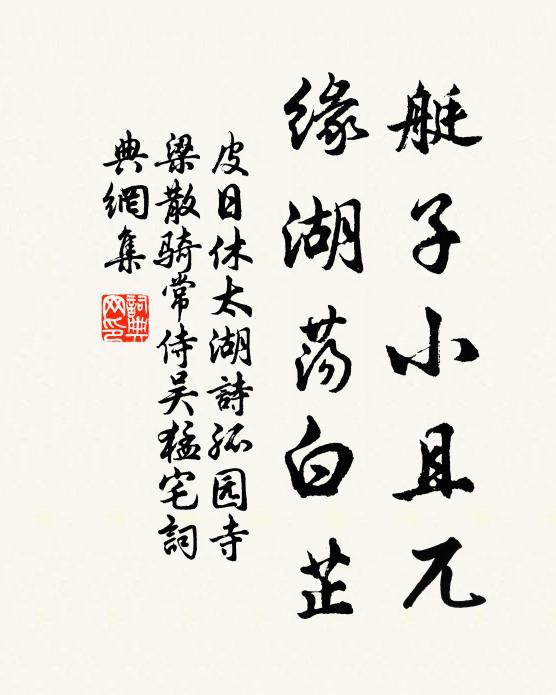 艇子小且兀
缘湖荡白芷
皮日休太湖詩孤园寺
梁散骑常侍吴猛宅詞
典網集
詞典
网印